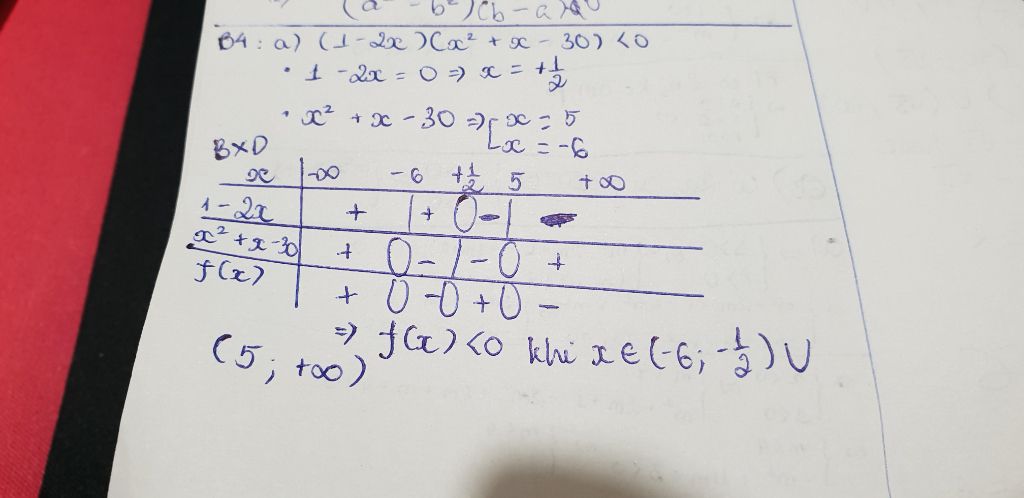 (a - b²)(b - a)
B4 : a) (1 - 2x)(x² + x - 30) < 0
• 1 - 2x = 0 => x = +1/2
• x² + x - 30 => [x = 5
[x = -6
BXD
x | -∞ -6 +1/2 5 +∞
1 - 2x | + | + 0 - | -
x² + x - 30 | + 0 - | - 0 +
f(x) | + 0 - 0 + 0 -
=> f(x) < 0 khi x ∈ (-6; -1/2) ∪
(5; +∞)